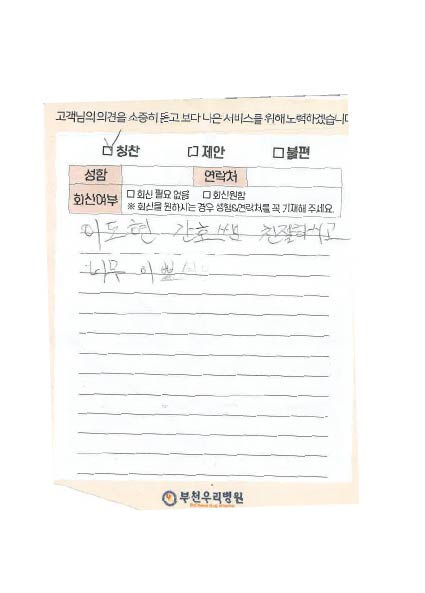 고객님의 의견을 소중히 듣고 보다 나은 서비스를 위해 노력하겠습니다
칭찬 제안 불편
성함 연락처
회신여부 회신 필요 없음 회신원함
※ 회신을 원하시는 경우 성함&연락처를 꼭 기재해 주세요.
이도현 간호쌤 친절하시고
너무 이쁘
부천우리병원